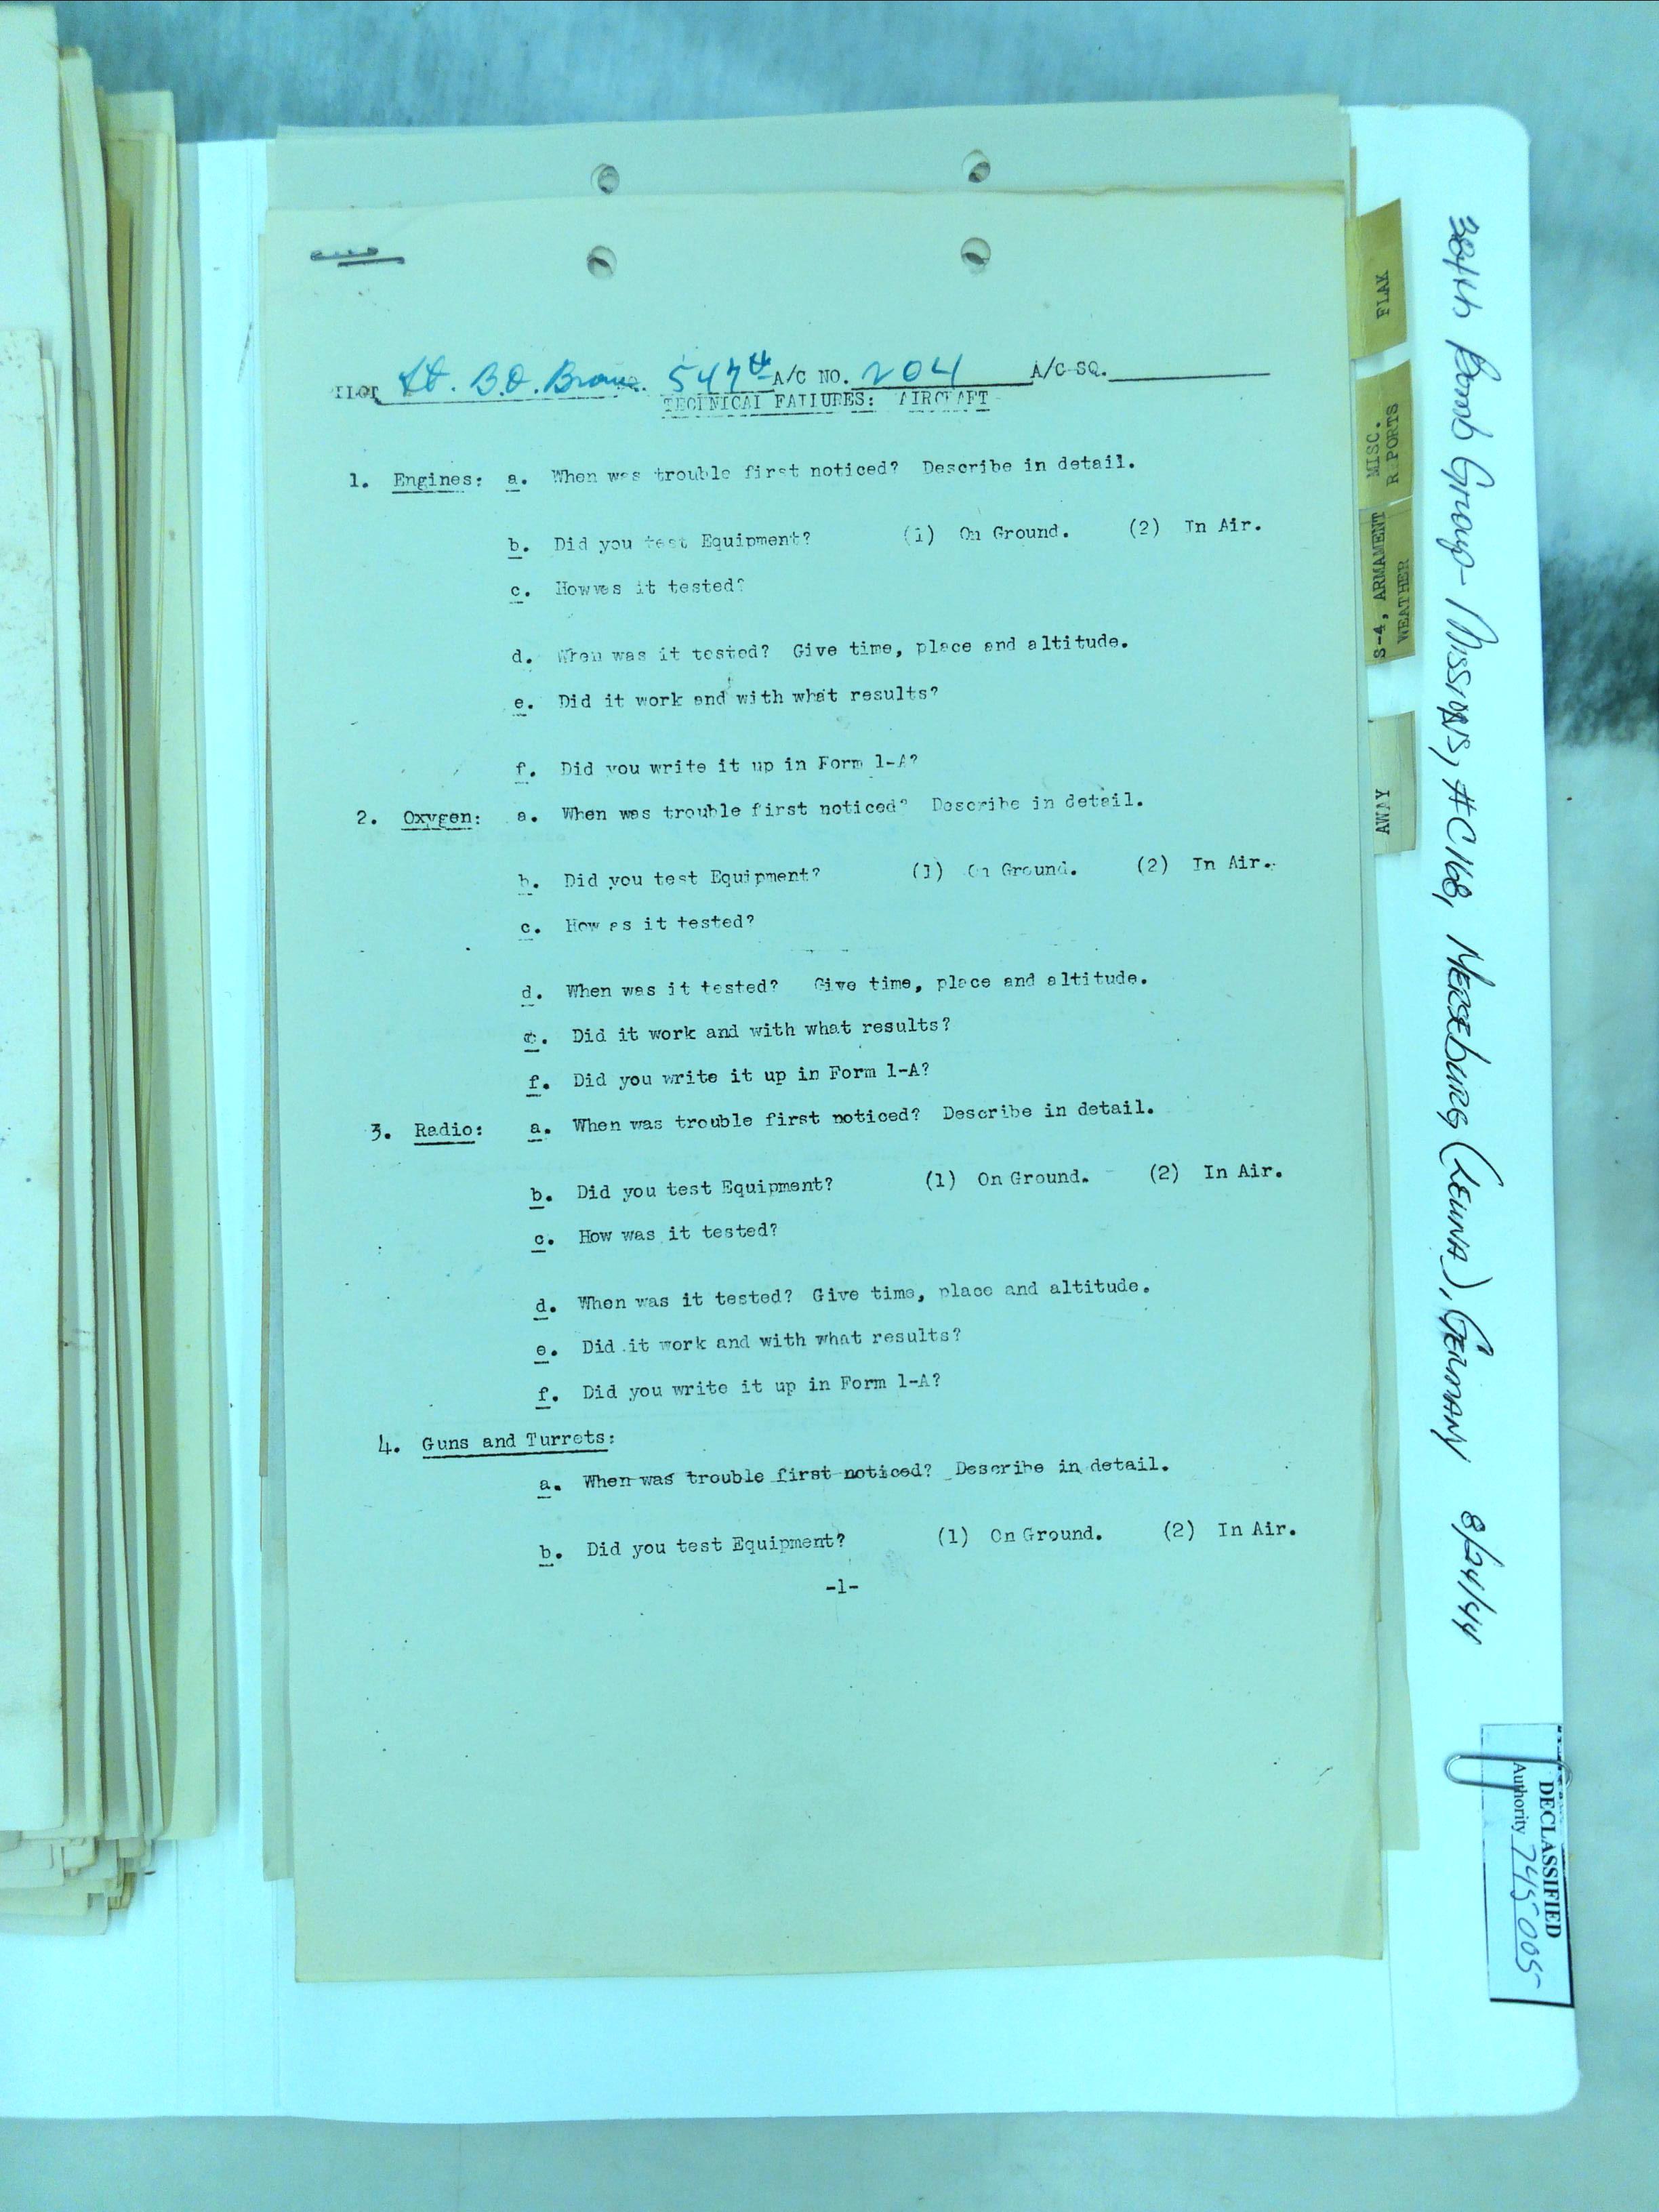 PILOT Lt. B.O. Brown SQ. 547th A/C NO. 204 A/C SQ.
TECHNICAL FAILURES: AIRCRAFT
1. Engines: a. When was trouble first noticed? Describe in detail.
b. Did you test Equipment? (1) On Ground. (2) In Air.
c. How was it tested?
d. When was it tested? Give time, place and altitude.
e. Did it work and with what results?
f. Did you write it up in Form 1-A?
2. Oxygen: a. When was trouble first noticed? Describe in detail.
b. Did you test Equipment? (1) On Ground. (2) In Air.
c. How as it tested?
d. When was it tested? Give time, place and altitude.
e. Did it work and with what results?
f. Did you write it up in Form 1-A?
3. Radio: a. When was trouble first noticed? Describe in detail.
b. Did you test Equipment? (1) On Ground. (2) In Air.
c. How was it tested?
d. When was it tested? Give time, place and altitude.
e. Did it work and with what results?
f. Did you write it up in Form 1-A?
4. Guns and Turrets:
a. When was trouble first noticed? Describe in detail.
b. Did you test Equipment? (1) On Ground. (2) In Air.
-1-
FLAK
MISC.
REPORTS
S-4, ARMAMENT
WEATHER
AWAY
384th Bomb Group - Missions, #C168, Merseburg (Leuna), Germany 8/24/44
DECLASSIFIED
Authority 745005